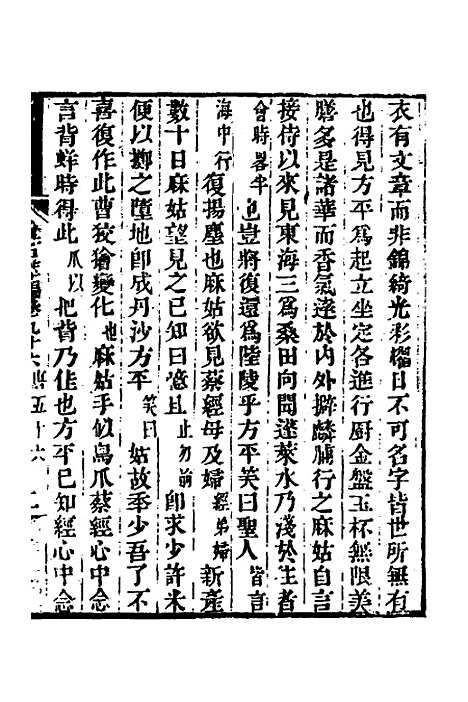 衣有文章而非錦綺光彩耀日不可名字皆世所無有
也得見方平爲起立坐定各進行厨金盤玉杯無限美
膳多是諸華而香氣達於內外擗麟脯行之麻姑自言
接侍以來見東海三爲桑田向聞蓬萊水乃淺於往者
會時畧半也豈將復還爲陸陵乎方平笑曰聖人皆言
海中行復揚塵也麻姑欲見蔡經母及婦經弟婦新產
數十日麻姑望見之已知曰噫且止勿前卽求少許米
便以擲之墮地卽成丹沙方平笑曰姑故年少吾了不
喜復作此曹狡獪變化也麻姑手似鳥爪蔡經心中念
言背蛘時得此爪以把背乃佳也方平已知經心中念
卷九十六 五十六